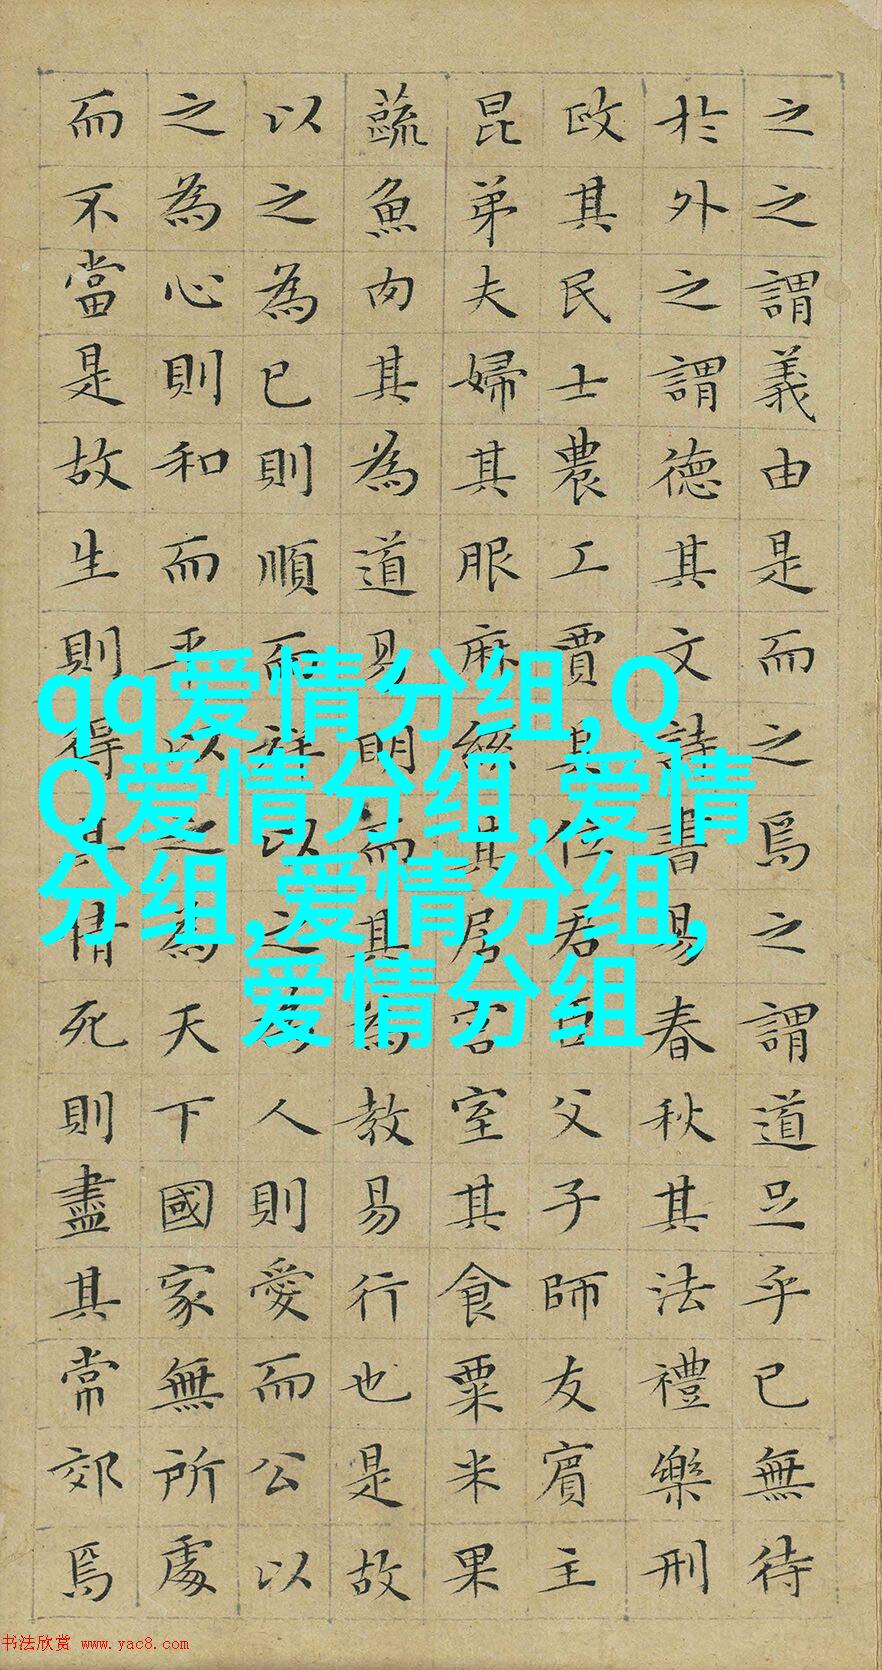 之之謂義由是而之焉之謂道足乎已無待
於外之謂德其文詩書易春秋其法禮樂刑
政其民士農工賈其位君臣父子師友賓主
昆弟夫婦其服麻絲其居宮室其食粟米果
蔬魚肉其為道易明而其為教易行也是故
以之為已則順而祥以之為人則愛而公以
之為心則和而平以之為天下國家無所處
而不當是故生則得其情死則盡其常郊焉
qq爱情分组,Q
Q爱情分组,爱情
分组,爱情分组,
爱情分组
书法欣赏 www.yac8.com